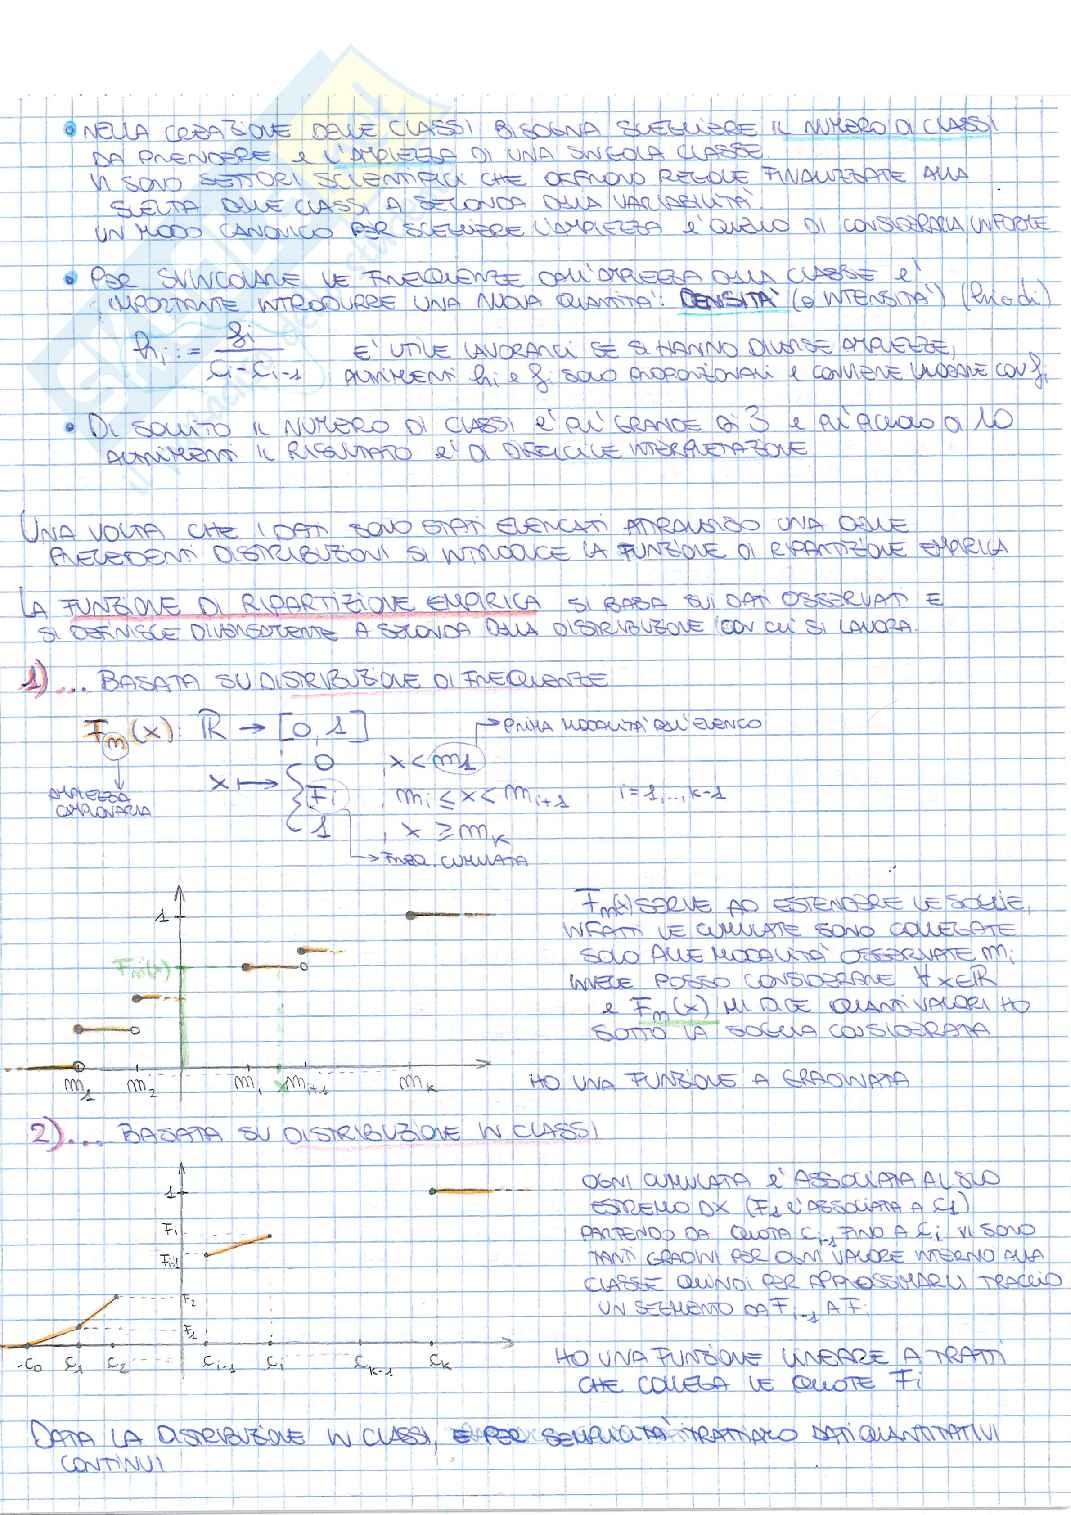 • NELLA CREAZIONE DELLE CLASSI BISOGNA SCEGLIERE IL NUMERO DI CLASSI
DA PRENDERE e L'AMPIEZZA DI UNA SINGOLA CLASSE.
VI SONO SETTORI SCIENTIFICI CHE OFFRONO REGOLE FINALIZZATE ALLA
SCELTA DELLE CLASSI A SECONDA DELLA VARIABILITÀ.
UN MODO CANONICO PER SCEGLIERE L'AMPIEZZA e' QUELLO DI CONSIDERARLA UNIFORME
• PER SVINCOLARE LE FREQUENZE DALL'AMPIEZZA DELLA CLASSE e'
IMPORTANTE INTRODURRE UNA NUOVA QUANTITA': DENSITA' (o INTENSITA') (hi o di)
hi := fi / (ci - ci-1) E' UTILE LAVORARCI SE SI HANNO DIVERSE AMPIEZZE,
ALTRIMENTI hi e fi SONO PROPORZIONALI e CONVIENE LAVORARE CON fi
• DI SOLITO IL NUMERO DI CLASSI e' PIU' GRANDE DI 3 e PIU' PICCOLO DI 10
ALTRIMENTI IL RISULTATO e' DI DIFFICILE INTERPRETAZIONE
UNA VOLTA CHE I DATI SONO STATI ELENCATI ATTRAVERSO UNA DELLE
PRECEDENTI DISTRIBUZIONI SI INTRODUCE LA FUNZIONE DI RIPARTIZIONE EMPIRICA
LA FUNZIONE DI RIPARTIZIONE EMPIRICA SI BASA SUI DATI OSSERVATI E
SI DEFINISCE DIVERSAMENTE A SECONDA DELLA DISTRIBUZIONE CON CUI SI LAVORA.
1)... BASATA SU DISTRIBUZIONE DI FREQUENZE
Fm(x): R → [0,1] → PRIMA MODALITÀ DELL'ELENCO
x ↦ { 0 , x < m1
Fi , mi ≤ x < mi+1 i=1,...,k-1
1 , x ≥ mk
AMPIEZZA
CAMPIONARIA
→ FREQ. CUMULATA
1
Fm(x)
m1 m2 mi x mi+1 mk
Fm(x) SERVE AD ESTENDERE LE SOGLIE,
INFATTI LE CUMULATE SONO COLLEGATE
SOLO ALLE MODALITÀ OSSERVATE mi
INVECE POSSO CONSIDERARE ∀x∈R
e Fm(x) MI DICE QUANTI VALORI HO
SOTTO LA SOGLIA CONSIDERATA
HO UNA FUNZIONE A GRADINATA
2)... BASATA SU DISTRIBUZIONE IN CLASSI
1
Fi
Fi-1
F2
F1
C0 C1 C2 Ci-1 Ci Ck-1 Ck
OGNI CUMULATA e' ASSOCIATA AL SUO
ESTREMO DX (F1 e' ASSOCIATA A C1)
PARTENDO DA QUOTA Ci-1 FINO A Ci VI SONO
TANTI GRADINI PER OGNI VALORE INTERNO ALLA
CLASSE QUINDI PER APPROSSIMARLI TRACCIO
UN SEGMENTO DA Fi-1 A Fi
HO UNA FUNZIONE LINEARE A TRATTI
CHE COLLEGA LE QUOTE Fi
DATA LA DISTRIBUZIONE IN CLASSI, E PER SEMPLICITÀ TRATTIAMO DATI QUANTITATIVI
CONTINUI